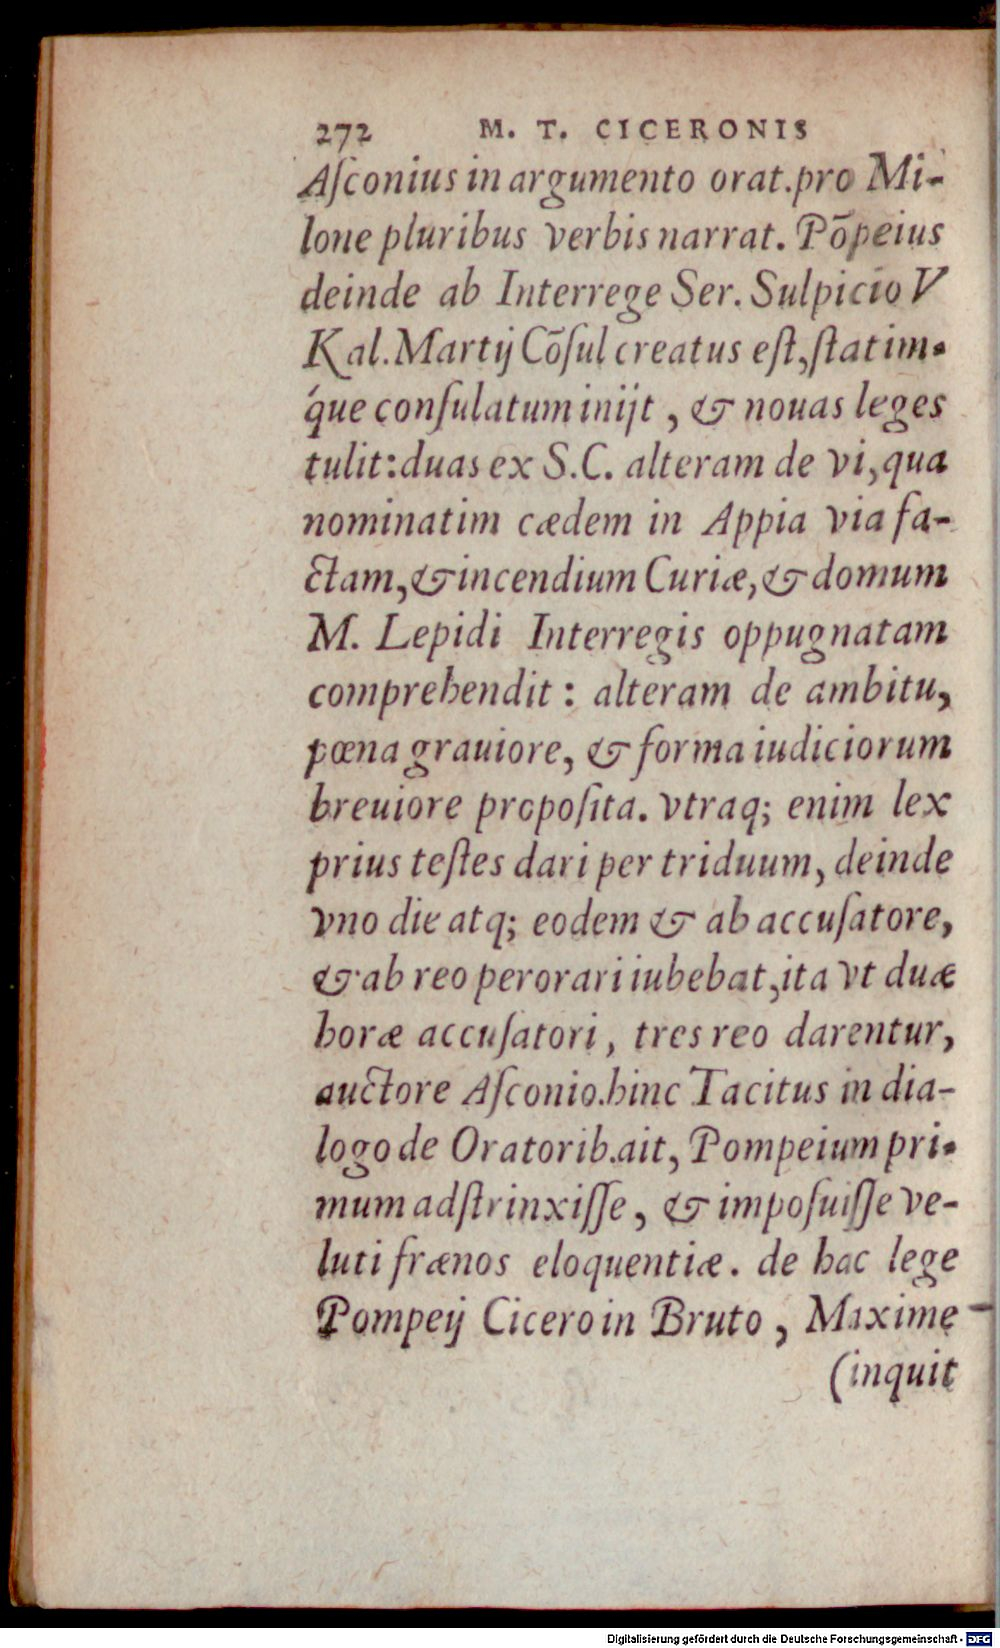 272 M. T. CICERONIS
Aſconius in argumento orat. pro Mi-
lone pluribus verbis narrat. Põpeius
deinde ab Interrege Ser. Sulpicio V
Kal. Martij Cõſul creatus eſt, ſtatim-
q́ue conſulatum inijt, & nouas leges
tulit: duas ex S.C. alteram de vi, qua
nominatim cædem in Appia via fa-
ctam, & incendium Curiæ, & domum
M. Lepidi Interregis oppugnatam
comprehendit: alteram de ambitu,
pœna grauiore, & forma iudiciorum
breuiore propoſita. vtraq; enim lex
prius teſtes dari per triduum, deinde
vno die atq; eodem & ab accuſatore,
& ab reo perorari iubebat, ita vt duæ
horæ accuſatori, tres reo darentur,
auctore Aſconio. hinc Tacitus in dia-
logo de Oratorib. ait, Pompeium pri-
mum adſtrinxiſſe, & impoſuiſſe ve-
luti frænos eloquentiæ. de hac lege
Pompeij Cicero in Bruto, Maxime
(inquit
Digitalisierung gefördert durch die Deutsche Forschungsgemeinschaft - DFG